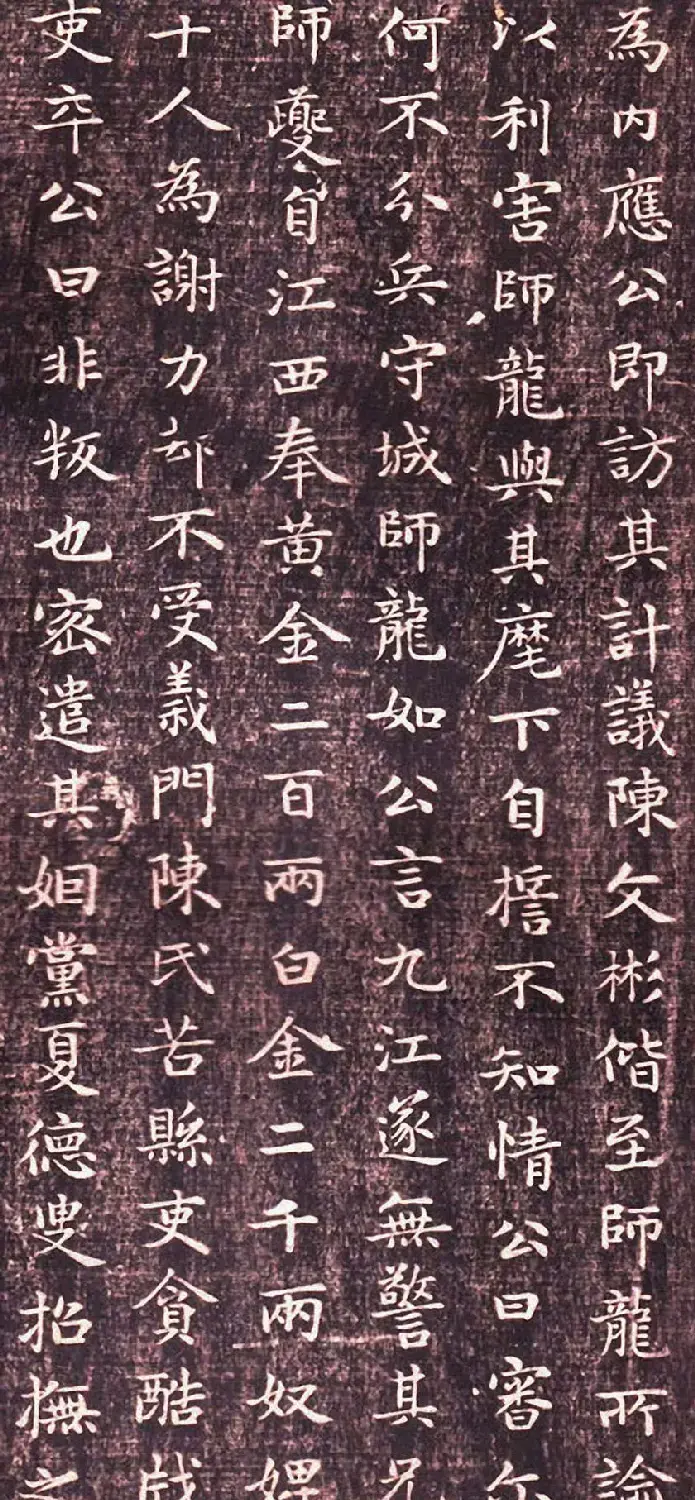 為内應公即訪其計議陳文彬偕至師龍所諭
以利害師龍與其麾下自誓不知情公曰審尔
何不分兵守城師龍如公言九江遂無警其兄
師夔自江西奉黄金二百兩白金二千兩奴婢
十人為謝力却不受義門陳氏苦縣吏貪酷戕
吏卒公曰非叛也密遣其姻黨夏德叟招撫之